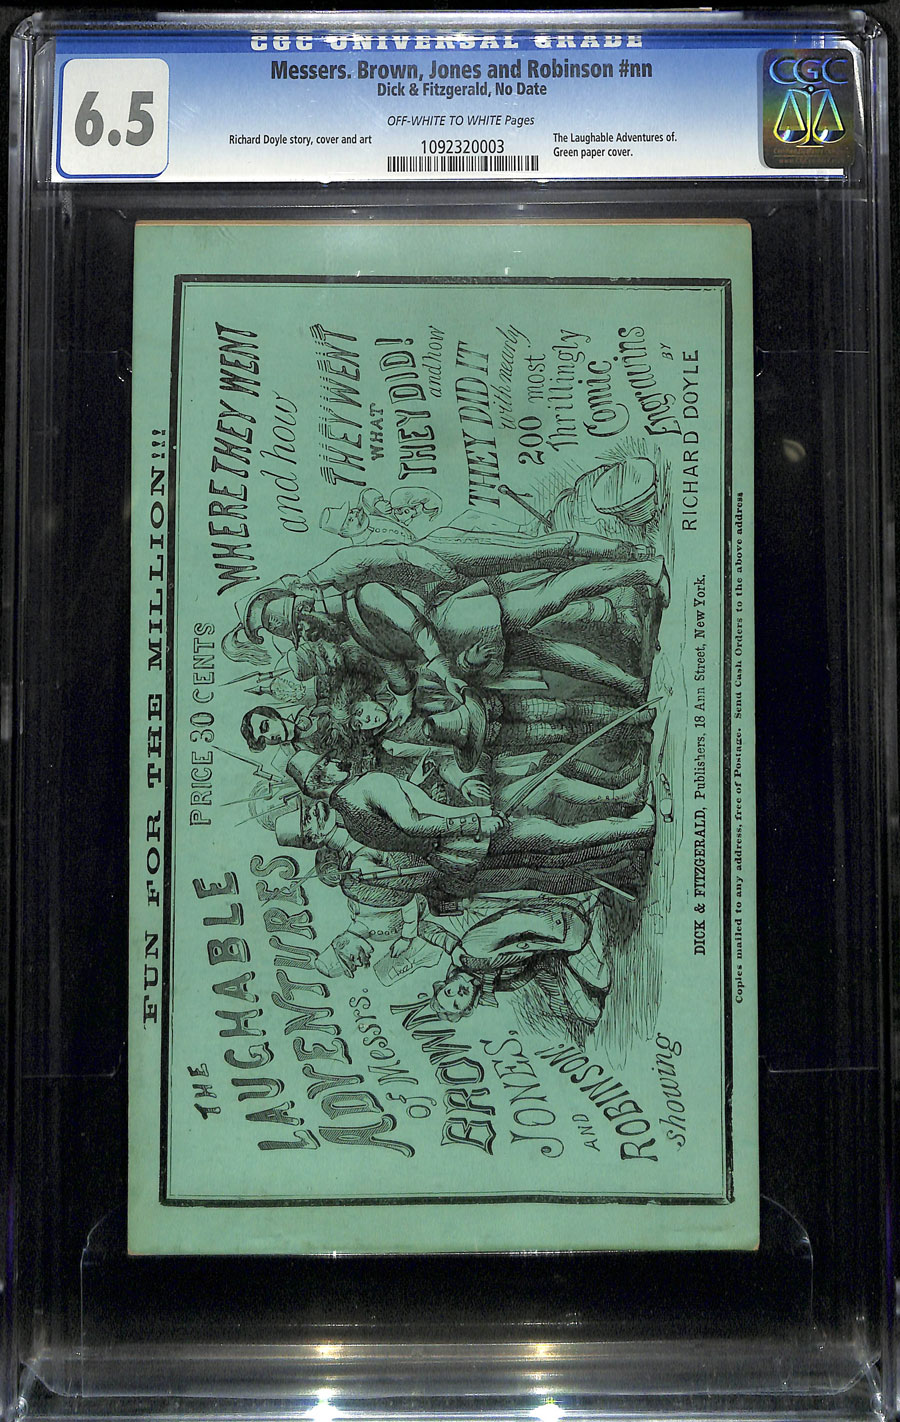 CGC UNIVERSAL GRADE
6.5
Messers. Brown, Jones and Robinson #nn
Dick & Fitzgerald, No Date
OFF-WHITE TO WHITE Pages
Richard Doyle story, cover and art
1092320003
The Laughable Adventures of.
Green paper cover.
CGC
FUN FOR THE MILLION!!!
PRICE 30 CENTS
THE
LAUGHABLE
ADVENTURES
of Messrs.
BROWN,
JONES,
AND
ROBINSON!
showing
WHERE THEY WENT
and how
THEY WENT
WHAT
THEY DID!
and how
THEY DID IT
with nearly
200 most
thrillingly
Comic
Engravins
BY
RICHARD DOYLE
DICK & FITZGERALD, Publishers, 18 Ann Street, New York.
Copies mailed to any address, free of Postage. Send Cash Orders to the above address